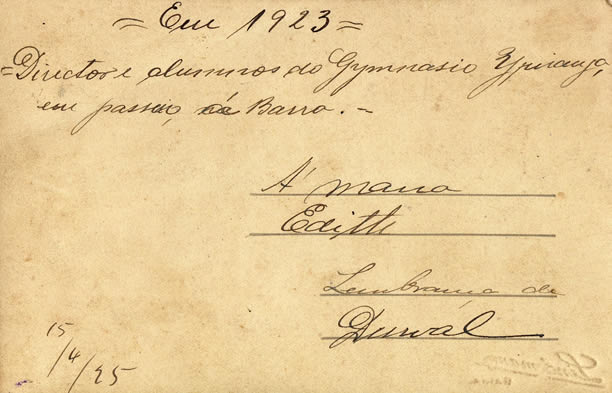 = Em 1923 =
= Director e alumnos do Gymnasio Ypiranga,
em passeio, á Barra. =
A' mana
Edith
Lembrança de
Durval
15/4/25